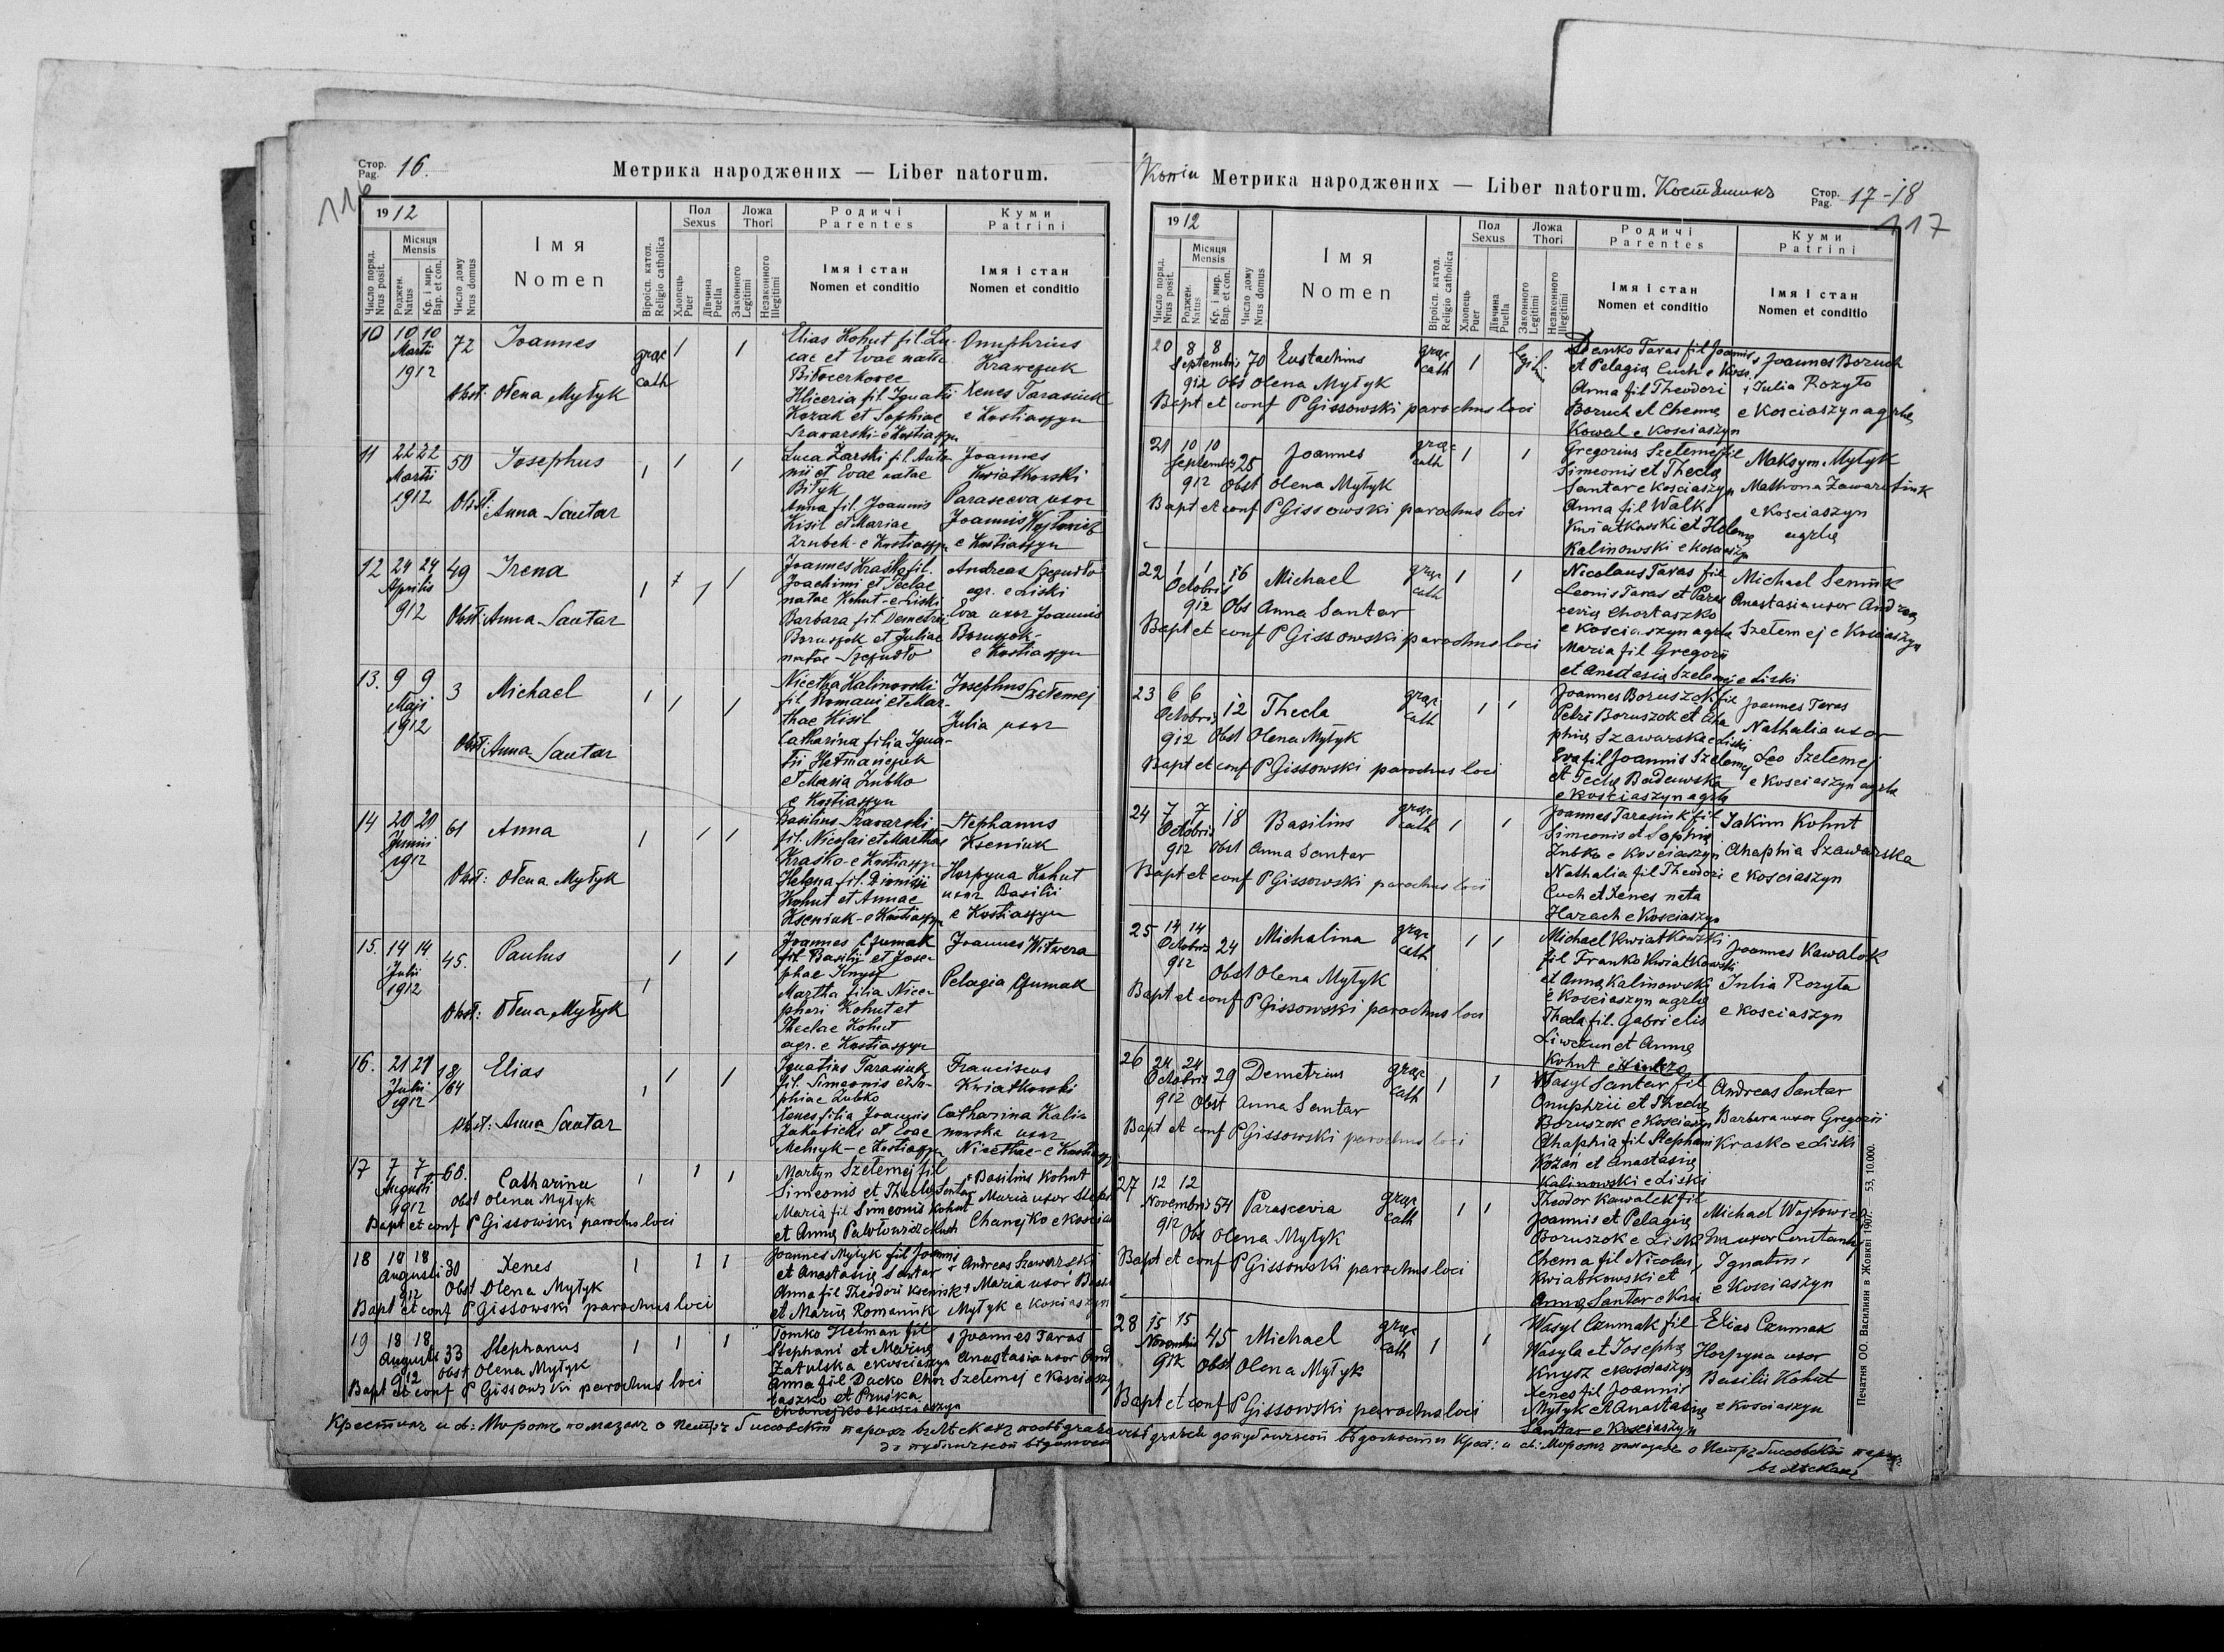 Стор.
Pag. 16.
116
Метрика народжених — Liber natorum.
1912
Число поряд.
Nrus posit.
Місяця
Mensis
Роджен.
Natus
Кр. і мир.
Bap. et con.
Число дому
Nrus domus
Імя
Nomen
Віроісп. катол.
Religio catholica
Пол
Sexus
Хлопець
Puer
Дівчина
Puella
Ложа
Thori
Законного
Legitimi
Незаконного
Illegitimi
Родичі
Parentes
Імя і стан
Nomen et conditio
Куми
Patrini
Імя і стан
Nomen et conditio
10 10 10 Martii 1912 72 Joannes
graec cath 1 1
Obst: Ołena Mytyk
Elias Kohut fil. Lu-
cae et Evae natae
Biłocerkovec
Hliceria fil. Ignatii
Kozak et Sophiae
Szawarski - e Kostiaszyn
Onuphrius
Krawczuk
Xenes Tarasiuk
e Kostiaszyn
11 22 22 Martii 1912 50 Josephus 1 1 1
Obst: Anna Santar
Luca Żarski fil. Anto-
nii et Evae natae
Bityk
Anna fil. Joannis
Kisil et Mariae
Zrubek - e Kostiaszyn
Joannes
Kwiatkowski
Parasceva uxor
Joannis Wojtowicz
e Kostiaszyn
12 24 24 Aprilis 912 49 Irena 1 1 1
Obst: Anna Santar
Joannes Kraśko fil.
Joachimi et Teclae
natae Kohut - e Liski
Barbara fil. Demetrii
Boruszok et Juliae
natae Szczudło
Andreas Szczudło
agr. e Liski
Eva uxor Joannis
Boruszok -
e Kostiaszyn
13. 9 9 Maji 1912 3 Michael 1 1 1
Obst: Anna Santar
Nicetha Kalinowski
fil. Romani et Mar-
thae Kisil
Catharina filia Igna-
tii Hetmańczuk
et Maria Zubko
e Kostiaszyn
Josephus Szełemej
Julia uxor
14 20 20 Junii 1912 61 Anna 1 1 1
Obst: Ołena Mytyk
Basilius Szawarski
fil. Nicolai et Marthae
Kraśko - e Kostiaszyn
Helena fil. Dionisii
Kohut et Annae
Kseniuk - e Kostiaszyn
Stephanus
Kseniuk
Horpyna Kohut
uxor Basilii
e Kostiaszyn
15. 14 14 Julii 1912 45. Paulus 1 1 1
Obst: Ołena Mytyk
Joannes Czumak
fil. Basilii et Jose-
phae Knysz
Martha filia Nice-
phori Kohut et
Theclae Kohut
agr. e Kostiaszyn
Joannes Witwera
Pelagia Czumak
16. 21 21 Julii 1912 18/64 Elias 1 1 1
Obst: Anna Santar
Ignatius Tarasiuk
fil. Simeonis et So-
phiae Zubko
Xenes filia Joannis
Jakubicki et Evae
Melnyk - e Kostiaszyn
Franciscus
Kwiatkowski
Catharina Kalin
nowska uxor
Nicethae - e Kostiaszyn
17 7 7 Augusti 1912 60. Catharina 1 1 1
Obst Olena Mytyk
Bapt et conf P Gissowski parochus loci
Martyn Szełemej fil
Simeonis et Theclę Santar
Maria fil Simeonis Kohut
Basilius Kohut
Maria uxor
Chanejko
18 18 18 Augusti 912 30 Xenes 1 1 1
Obst Olena Mytyk
Bapt et conf P Gissowski parochus loci
Joannes Mytyk fil Joannis
et Anastasię Santar
Anna fil Theodori Kseniuk
et Marię Romaniuk
Andreas Szawarski
Maria uxor
Mytyk e Kosciaszyn
19 18 18 Augusti 912 33 Stephanus 1 1 1
Obst Olena Mytyk
Bapt et conf P Gissowski parochus loci
Tomko Hetman fil
Stephani et Marię
Zatulska e Kosciaszyn
Anna fil Dacko Chor
taszko et Pruśka
Chanejko e Kosciaszyn
Joannes Taras
Anastasia uxor
Szełemej e Kosciaszyn
Копія Метрика народжених — Liber natorum. Костяшинъ
Стор.
Pag. 17-18
117
1912
Число поряд.
Nrus posit.
Місяця
Mensis
Роджен.
Natus
Кр. і мир.
Bap. et con.
Число дому
Nrus domus
Імя
Nomen
Віроісп. катол.
Religio catholica
Пол
Sexus
Хлопець
Puer
Дівчина
Puella
Ложа
Thori
Законного
Legitimi
Незаконного
Illegitimi
Родичі
Parentes
Імя і стан
Nomen et conditio
Куми
Patrini
Імя і стан
Nomen et conditio
20 8 8 Septembris 912 70 Eustachius gręc cath 1
Obs Olena Mytyk
Bapt et conf P Gissowski parochus loci
Demko Taras fil Joannis
et Pelagię Cuch e Kosc
Anna fil Theodori
Boruch et Chemę
Kowal e Kosciaszyn
Joannes Boruch
Julia Rozyto
e Kosciaszyn agrlę
21 10 10 Septembris 912 25 Joannes gręc cath 1 1
Obst Olena Mytyk
Bapt et conf P Gissowski parochus loci
Gregorius Szełemej fil
Simeonis et Theclę
Santar e Kosciaszyn
Anna fil Walk
Kwiatkowski et Helenę
Kalinowski e Kosciaszyn
Maksym Mytyk
Mathrona
e Kosciaszyn
agrlę
22 1 1 Octobris 912 16 Michael gręc cath 1 1
Obs Anna Santar
Bapt et conf P Gissowski parochus loci
Nicolaus Taras fil
Leonis Taras et Paras
cevię Chortaszko
e Kosciaszyn agrlę
Maria fil Gregorii
et Anastasię Szełemej e Liski
Michael Seniuk
Anastasia uxor Andreę
Szełemej e Kosciaszyn
23 6 6 Octobris 912 12 Thecla gręc cath 1 1
Obst Olena Mytyk
Bapt et conf P Gissowski parochus loci
Joannes Boruszok fil
Petri Boruszok et Aha
phię Szawarska e Liski
Eva fil Joannis Szełemej
et Teclę Badewska
e Kosciaszyn agrlę
Joannes Taras
Nathalia uxor
Leo Szełemej
e Kosciaszyn agrlę
24 7 7 Octobris 912 18 Basilius gręc cath 1 1
Obst Anna Santar
Bapt et conf P Gissowski parochus loci
Joannes Tarasiuk fil
Simeonis et Sophię
Zubko e Kosciaszyn
Nathalia fil Theodori
Cuch et Xenes nata
Harach e Kosciaszyn
Jakim Kohut
Ahaphia Szawarska
e Kosciaszyn
25 14 14 Octobris 912 24 Michalina gręc cath 1 1
Obst Olena Mytyk
Bapt et conf P Gissowski parochus loci
Michael Kwiatkowski
fil Franko Kwiatkowski
et Annę Kalinowski
e Kosciaszyn agrlę
Thecla fil. Gabrielis
Liwczun et Annę
Kohut
Joannes Kawalok
Julia Rozyta
e Kosciaszyn
26 24 24 Octobris 912 29 Demetrius gręc cath 1 1
Obst Anna Santar
Bapt et conf P Gissowski parochus loci
Wasyl Santar fil
Onuphrii et Theclę
Boruszok e Kosciaszyn
Ahaphia fil Stephani
Kozań et Anastasię
Kalinowski e Liski
Andreas Santar
Barbara uxor Gregorii
Krasko e Liski
27 12 12 Novembris 912 54 Parascevia gręc cath 1 1
Obs Olena Mytyk
Bapt et conf P Gissowski parochus loci
Theodor Kawalek fil
Joannis et Pelagię
Boruszok e Liski
Chema fil Nicolai
Kwiatkowski et
Annę Santar e Kosci
Michael Wojtowicz
Eva uxor Constantii
Ignatius
e Kosciaszyn
28 15 15 Novembris 912 45 Michael gręc cath 1 1
Obst Olena Mytyk
Bapt et conf P Gissowski parochus loci
Wasyl Czumak fil
Wasyla et Josephę
Knysz e Kosciaszyn
Xenes fil Joannis
Mytyk et Anastasię
Santar e Kosciaszyn
Elias Czumak
Horpyna uxor
Basilii Kohut
e Kosciaszyn
Печатня ОО. Василиян в Жовкві 1907. — 53, 10.000.